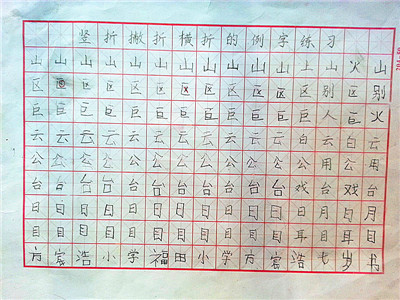 竖折撇折横折的例字练习
山山山山山山山山山山山上山火山
区区区区区区区区区区区区别区别
巨巨巨巨巨巨巨巨巨巨巨巨人巨火
云云云云云云云云云云云白云白云
公公公公公公公公公公公公用公用
台台台台台台台台台台台戏台戏台
日日日日日日日日日日日日月日月
目目目目目目目目目目目耳目耳目
方宸浩小学福田小学方宸浩七岁